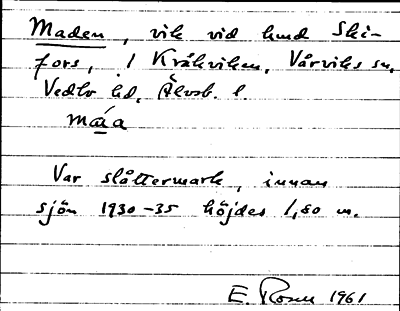 Maden, vik vid lund Ski-
fors, i Kråkviken, Vårviks sn,
Vedbo hd, Älvsb. l.
máa
Var slåttermark, innan
sjön 1930-35 höjdes 1,80 m.
E. Rosen 1961